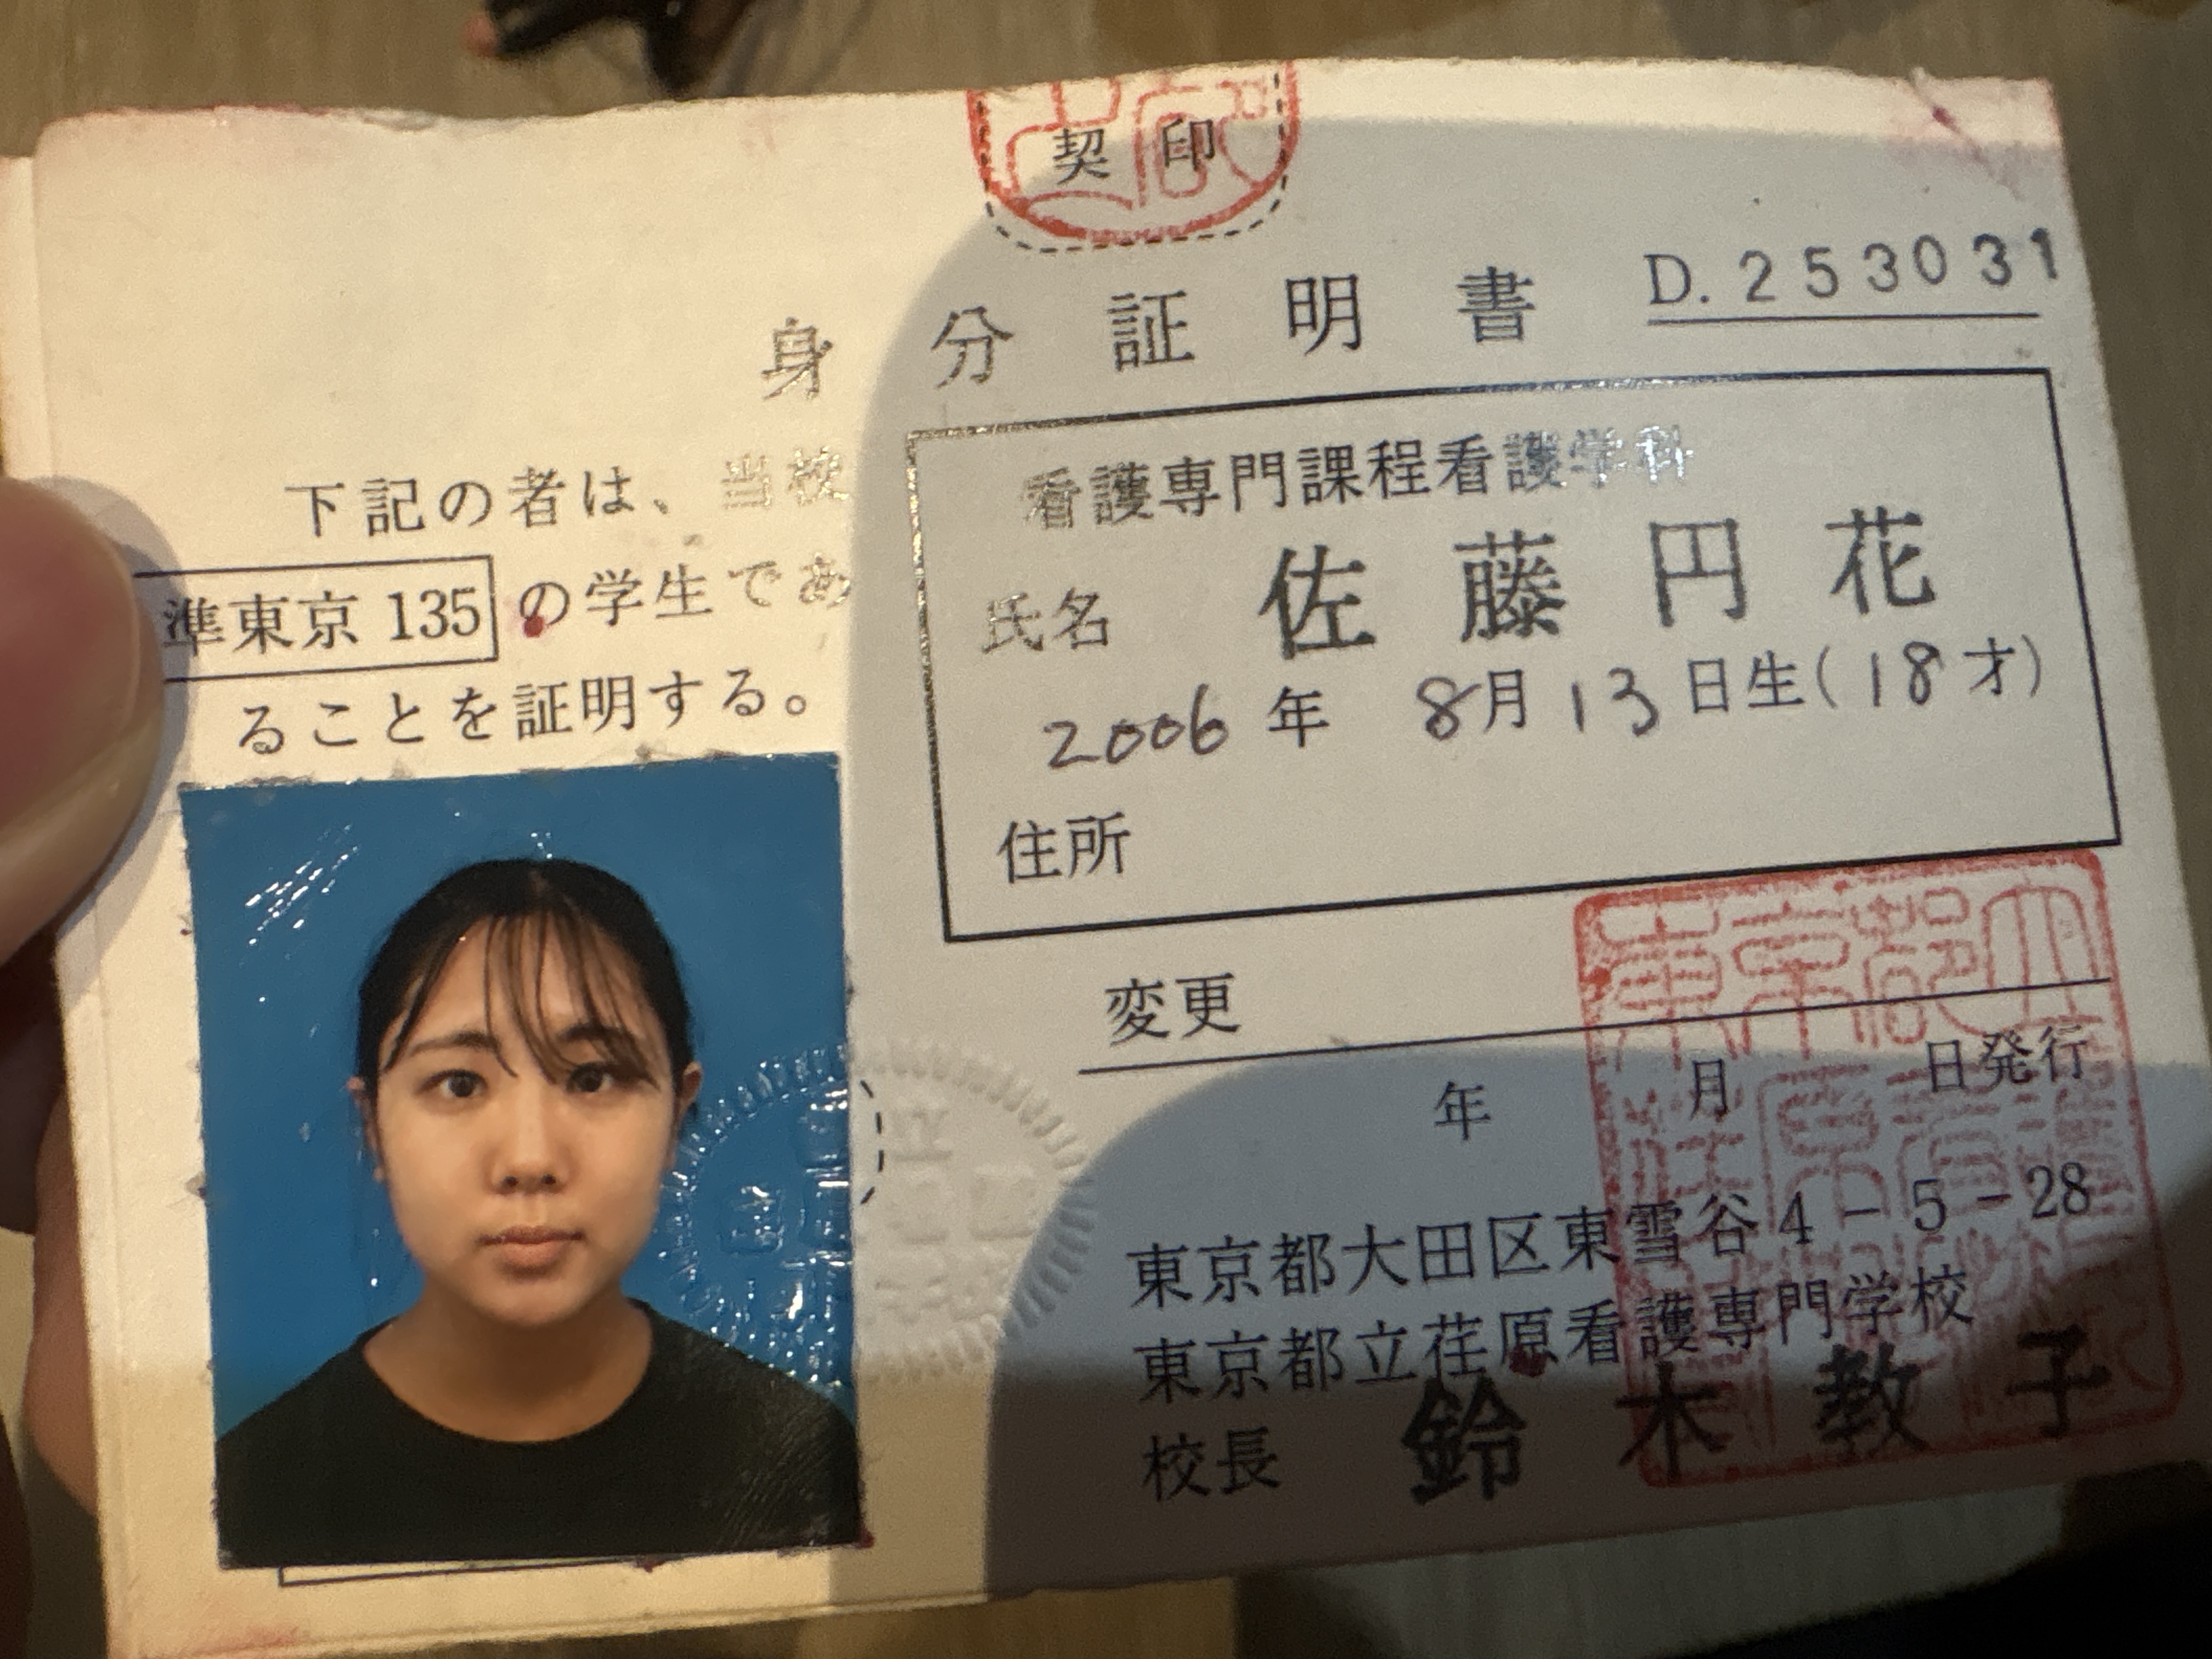 契印
身分証明書
D.253031
下記の者は、当校
準東京 135 の学生であ
ることを証明する。
看護専門課程看護学科
氏名 佐藤円花
2006年 8月13日生(18才)
住所
変更
年 月 日発行
東京都大田区東雪谷4-5-28
東京都立荏原看護専門学校
校長 鈴木教子